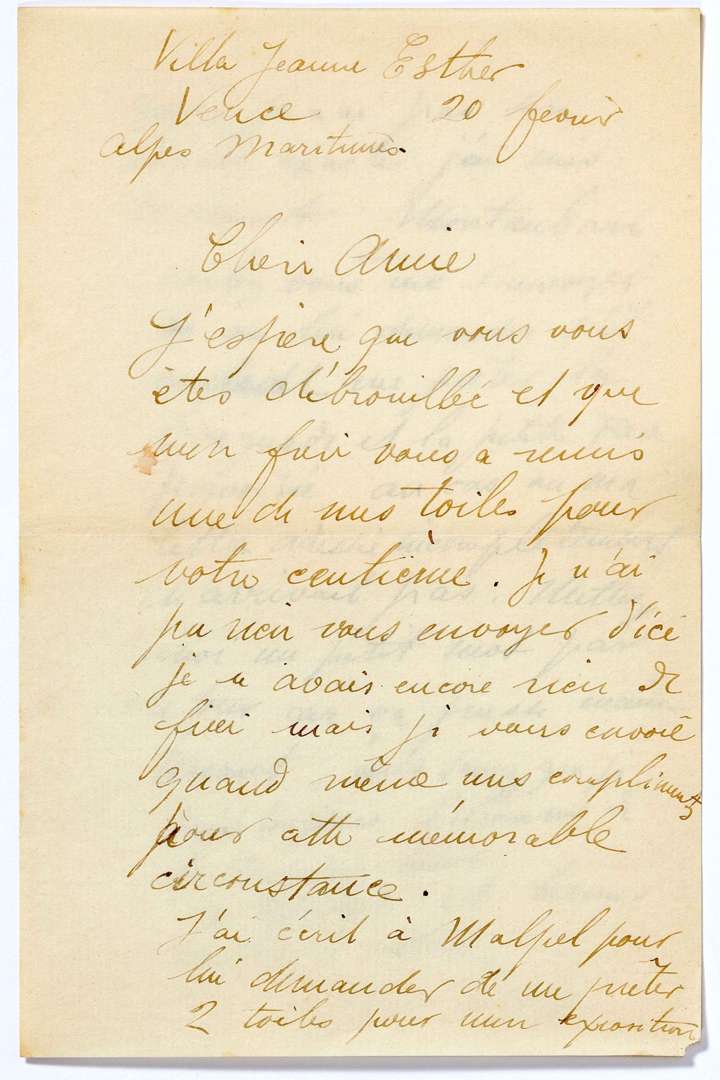 Villa Jeanne Esther
Vence 20 fevrier
Alpes Maritimes.
Cher Amie
J'espère que vous vous
êtes débrouillée et que
mon fils vous a remis
une de mes toiles pour
votre centième. Je n'ai
pu rien vous envoyer d'ici
je n'avais encore rien de
fini mais je vous envoie
quand même mes compliments
pour cette mémorable
circonstance.
J'ai écrit à Malpel pour
lui demander de me prêter
2 toiles pour mon exposition